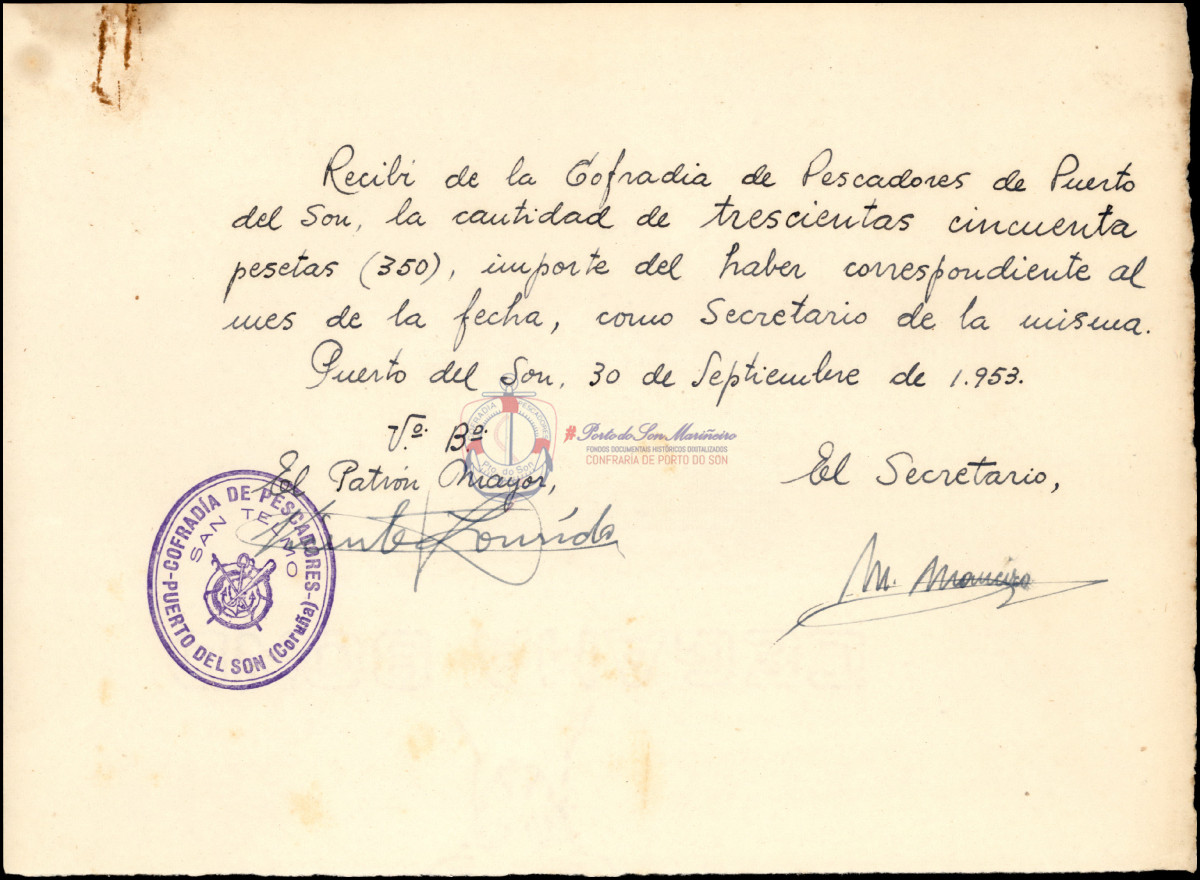 Recibí de la Cofradia de Pescadores de Puerto
del Son, la cantidad de trescientas cincuenta
pesetas (350), importe del haber correspondiente al
mes de la fecha, como Secretario de la misma.
Puerto del Son, 30 de Septiembre de 1.953.
Vº. Bº.
El Patrón Mayor,
El Secretario,
M. Maneiro
COFRADÍA DE PESCADORES
SAN TELMO
PUERTO DEL SON (Coruña)
COFRADIA PESCADORES
Pto. do Son
#Porto do Son Mariñeiro
FONDOS DOCUMENTAIS HISTÓRICOS DIXITALIZADOS
CONFRARÍA DE PORTO DO SON